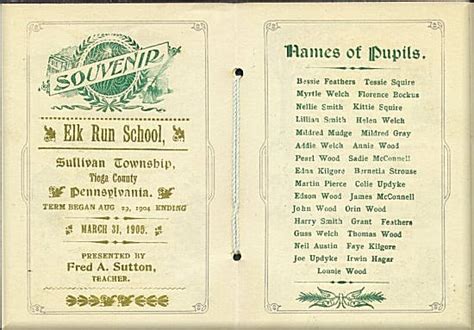 SOUVENIR
Elk Run School,
Sullivan Township,
Tioga County
Pennsylvania.
TERM BEGAN AUG 29, 1904 ENDING
MARCH 31, 1905.
PRESENTED BY
Fred A. Sutton,
TEACHER.
Names of Pupils.
Bessie Feathers Tessie Squire
Myrtle Welch Florence Bockus
Nellie Smith Kittie Squire
Lillian Smith Helen Welch
Mildred Mudge Mildred Gray
Addie Welch Annie Wood
Pearl Wood Sadie McConnell
Edna Kilgore Barnetia Strouse
Martin Pierce Colie Updyke
Edson Wood James McConnell
John Wood Orin Wood
Harry Smith Grant Feathers
Guss Welch Thomas Wood
Neil Austin Faye Kilgore
Joe Updyke Irwin Hagar
Lonnie Wood